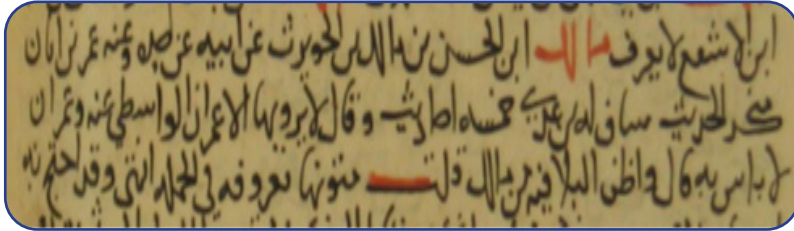 ابن الاشعع لا يعرف مالك ابن الحسن بن مالك بن الحويرث عن ابيه عن جده وعنه عمر بن ابان
منكر الحديث ساق له بن عدي خمسه احاديث وقال لا يرويها الا عمران الواسطي عنه وعمران
لا باس به قال واظن البلا فيه من مالك قلت متونها معروفه في الجمله انتهى وقد احتج به